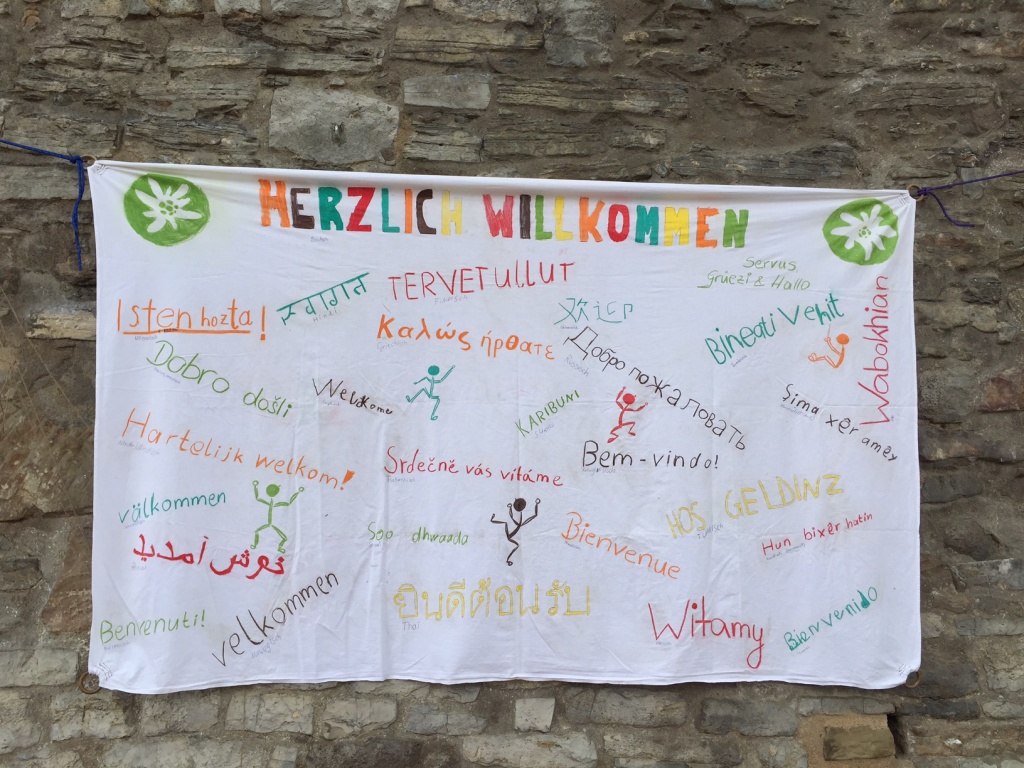 HERZLICH WILLKOMMEN
Servus
Grüezi & Hallo
TERVETULLUT
स्वागतम
Hindi
Isten hozta!
Καλώς ήρθατε
Bineati Venit
Wabokhian
Dobro došli
Welkkome
KARIBUNI
Добро пожаловать
Şima xer amey
Hartelijk welkom!
Srdečně vás vítáme
Bem-vindo!
HOŞ GELDINIZ
välkommen
Soo dhwaada
Bienvenue
Hun bixer hatin
خوش آمدید
ยินดีต้อนรับ
Thai
Benvenuti!
velkommen
Witamy
Bienvenido